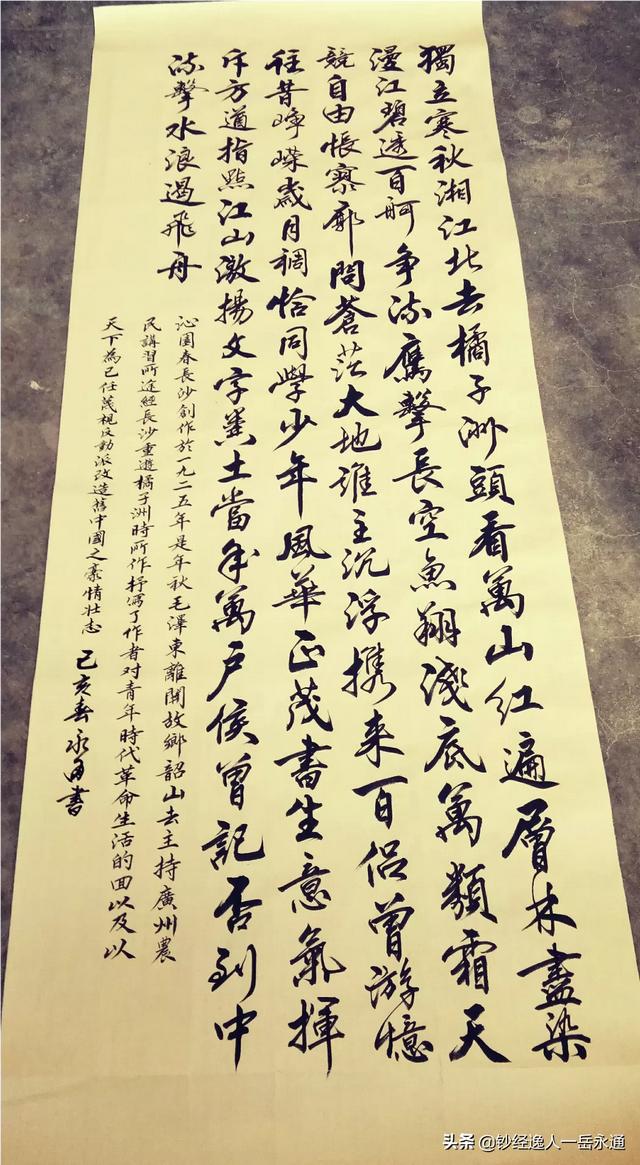 獨立寒秋湘江北去橘子洲頭看萬山紅遍層林盡染
漫江碧透百舸争流鷹擊長空魚翔淺底萬類霜天
競自由悵寥廓問蒼茫大地誰主沉浮携来百侣曾游憶
往昔崢嶸歲月稠恰同學少年風華正茂書生意氣揮
斥方遒指點江山激揚文字糞土當年萬户侯曾記否到中
流擊水浪遏飛舟
沁園春長沙創作於一九二五年是年秋毛澤東離開故鄉韶山去主持廣州農
民講習所途經長沙重遊橘子洲時所作抒寫了作者对青年時代革命生活的回以及以
天下為己任蔑視反動派改造舊中國之豪情壮志
己亥春永通書
头条 @钞经逸人一岳永通